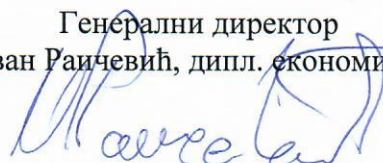 Генерални директор
ван Раичевић, дипл. економи